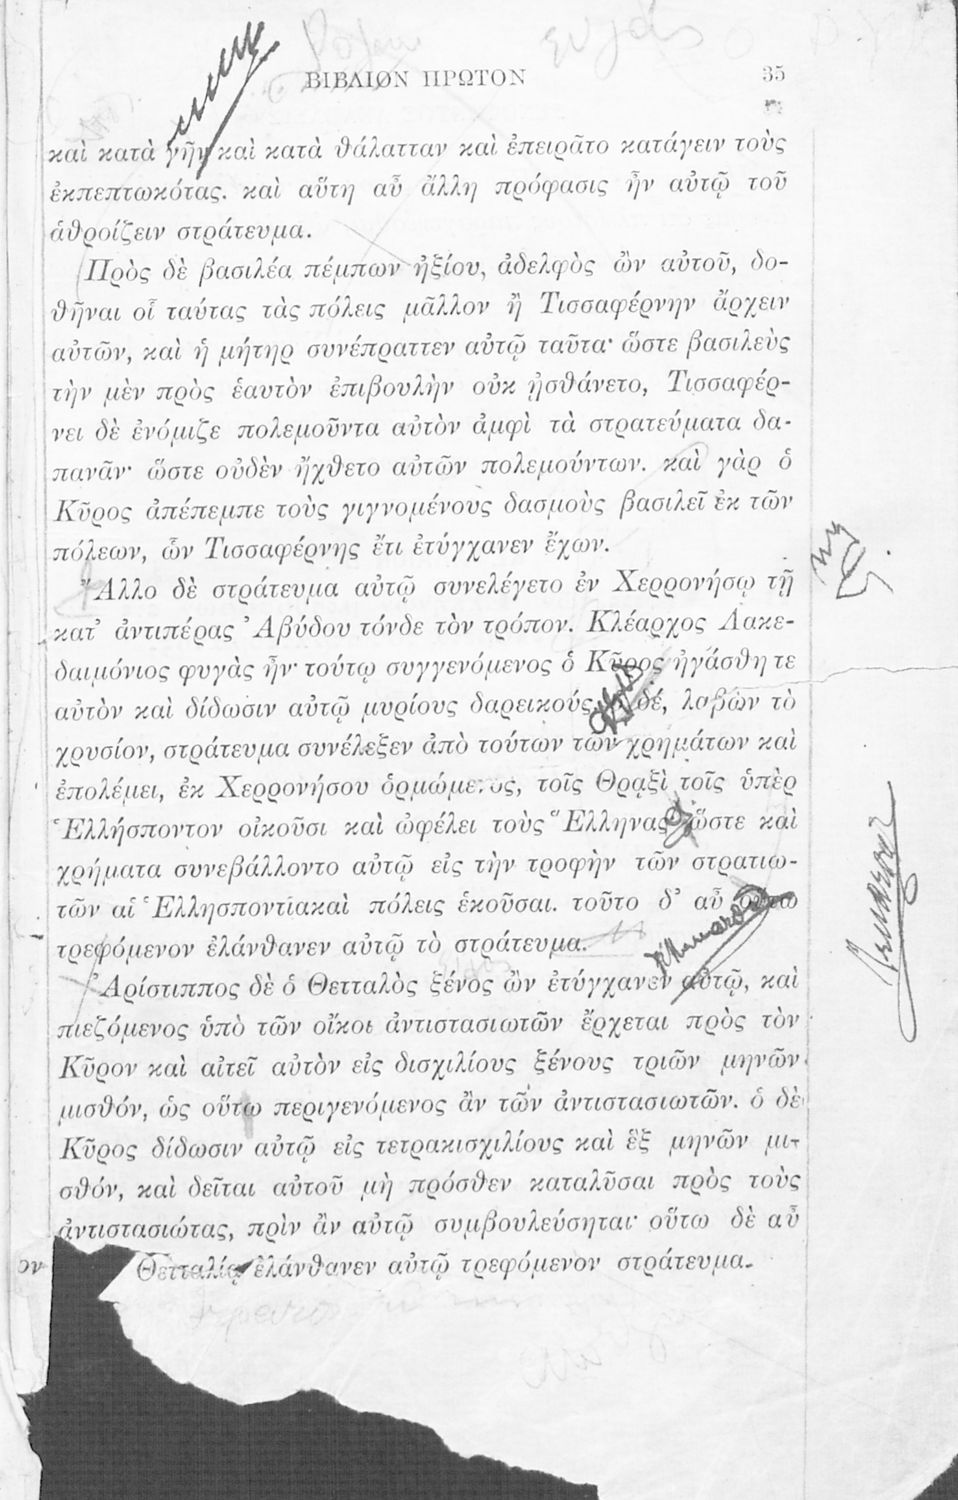 ΒΙΒΛΙΟΝ ΠΡΩΤΟΝ 35
καὶ κατὰ γῆν καὶ κατὰ θάλατταν καὶ ἐπειρᾶτο κατάγειν τοὺς
ἐκπεπτωκότας. καὶ αὕτη αὖ ἄλλη πρόφασις ἦν αὐτῷ τοῦ
ἁθροίζειν στράτευμα.
Πρὸς δὲ βασιλέα πέμπων ἠξίου, ἀδελφὸς ὢν αὐτοῦ, δο-
θῆναι οἷ ταύτας τὰς πόλεις μᾶλλον ἢ Τισσαφέρνην ἄρχειν
αὐτῶν, καὶ ἡ μήτηρ συνέπραττεν αὐτῷ ταῦτα· ὥστε βασιλεὺς
τὴν μὲν πρὸς ἑαυτὸν ἐπιβουλὴν οὐκ ᾐσθάνετο, Τισσαφέρ-
νει δὲ ἐνόμιζε πολεμοῦντα αὐτὸν ἀμφὶ τὰ στρατεύματα δα-
πανᾶν· ὥστε οὐδὲν ἤχθετο αὐτῶν πολεμούντων. καὶ γὰρ ὁ
Κῦρος ἀπέπεμπε τοὺς γιγνομένους δασμοὺς βασιλεῖ ἐκ τῶν
πόλεων, ὧν Τισσαφέρνης ἔτι ἐτύγχανεν ἔχων.
Ἄλλο δὲ στράτευμα αὐτῷ συνελέγετο ἐν Χερρονήσῳ τῇ
κατ' ἀντιπέρας Ἀβύδου τόνδε τὸν τρόπον. Κλέαρχος Λακε-
δαιμόνιος φυγὰς ἦν· τούτῳ συγγενόμενος ὁ Κῦρος ἠγάσθη τε
αὐτὸν καὶ δίδωσιν αὐτῷ μυρίους δαρεικούς. ὁ δέ, λαβὼν τὸ
χρυσίον, στράτευμα συνέλεξεν ἀπὸ τούτων τῶν χρημάτων καὶ
ἐπολέμει, ἐκ Χερρονήσου ὁρμώμενος, τοῖς Θρᾳξὶ τοῖς ὑπὲρ
Ἑλλήσποντον οἰκοῦσι καὶ ὠφέλει τοὺς Ἕλληνας· ὥστε καὶ
χρήματα συνεβάλλοντο αὐτῷ εἰς τὴν τροφὴν τῶν στρατιω-
τῶν αἱ Ἑλλησποντιακαὶ πόλεις ἑκοῦσαι. τοῦτο δ' αὖ οὕτω
τρεφόμενον ἐλάνθανεν αὐτῷ τὸ στράτευμα.
Ἀρίστιππος δὲ ὁ Θετταλὸς ξένος ὢν ἐτύγχανεν αὐτῷ, καὶ
πιεζόμενος ὑπὸ τῶν οἴκοι ἀντιστασιωτῶν ἔρχεται πρὸς τὸν
Κῦρον καὶ αἰτεῖ αὐτὸν εἰς δισχιλίους ξένους τριῶν μηνῶν
μισθόν, ὡς οὕτω περιγενόμενος ἂν τῶν ἀντιστασιωτῶν. ὁ δὲ
Κῦρος δίδωσιν αὐτῷ εἰς τετρακισχιλίους καὶ ἓξ μηνῶν μι-
σθόν, καὶ δεῖται αὐτοῦ μὴ πρόσθεν καταλῦσαι πρὸς τοὺς
ἀντιστασιώτας, πρὶν ἂν αὐτῷ συμβουλεύσηται· οὕτω δὲ αὖ
Θετταλίᾳ ἐλάνθανεν αὐτῷ τρεφόμενον στράτευμα.